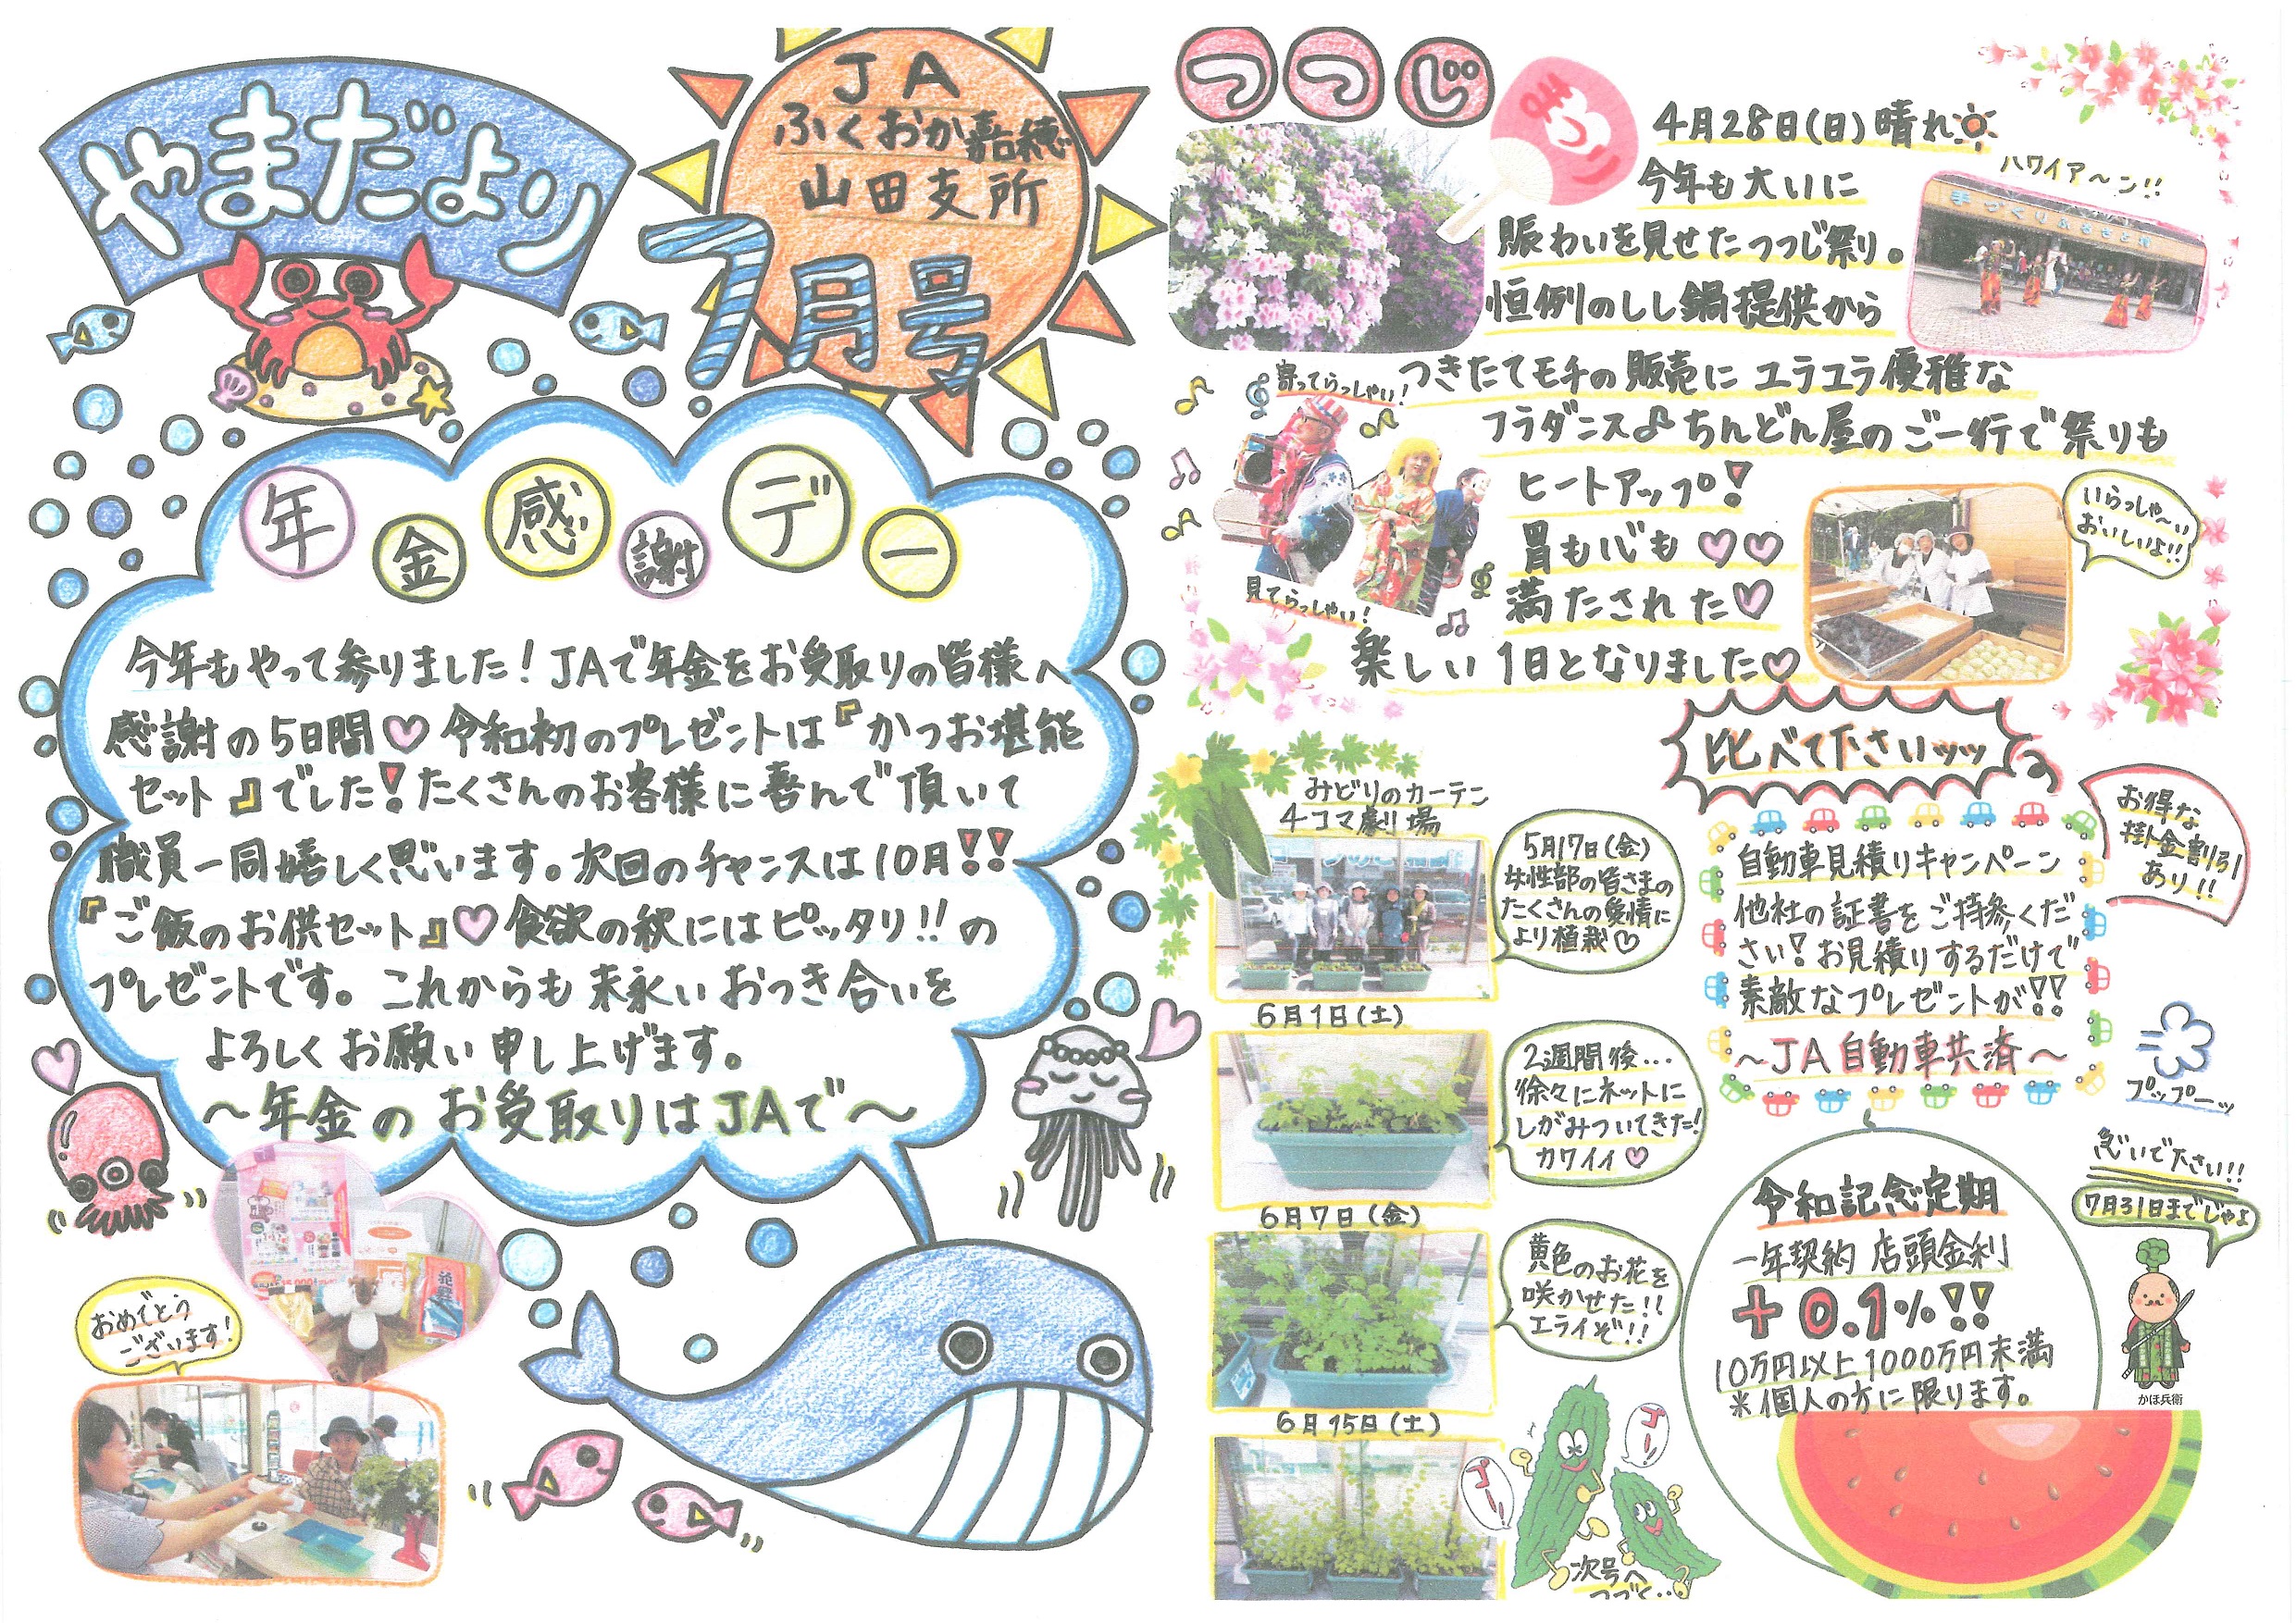 やまだより
JA
ふくおか嘉穂
山田支所
7月号
年金感謝デー
今年もやって参りました！JAで年金をお受取りの皆様へ
感謝の5日間♡令和初のプレゼントは『かつお堪能
セット』でした！たくさんのお客様に喜んで頂いて
職員一同嬉しく思います。次回のチャンスは10月!!
『ご飯のお供セット』♡食欲の秋にはピッタリ!!の
プレゼントです。これからも末永いおつき合いを
よろしくお願い申し上げます。
～年金のお受取りはJAで～
おめでとう
ございます！
つつじ
まつり
4月28日(日)晴れ
今年も大いに
賑わいを見せたつつじ祭り。
恒例のしし鍋提供から
つきたてモチの販売にユラユラ優雅な
フラダンス♪ちんどん屋のご一行で祭りも
ヒートアップ！
胃も心も♡♡
満たされた♡
楽しい1日となりました♡
ハワイア～ン!!
手づくりふるさと村
寄ってらっしゃい！
見てらっしゃい！
いらっしゃ～い
おいしいよ!!
みどりのカーテン
4コマ劇場
5月17日(金)
女性部の皆さまの
たくさんの愛情に
より植栽♡
6月1日(土)
2週間後…
徐々にネットに
しがみついてきた！
カワイイ♡
6月7日(金)
黄色のお花を
咲かせた!!
エライぞ!!
6月15日(土)
ゴー！
ゴー！
次号へ
つづく…
比べて下さいッッ
お得な
掛金割引
あり!!
自動車見積りキャンペーン
他社の証書をご持参くだ
さい！お見積りするだけで
素敵なプレゼントが!!
～JA自動車共済～
プップーッ
急いで下さい!!
7月31日までじゃよ
かほ兵衛
令和記念定期
一年契約 店頭金利
+0.1%!!
10万円以上1000万円未満
※個人の方に限ります。